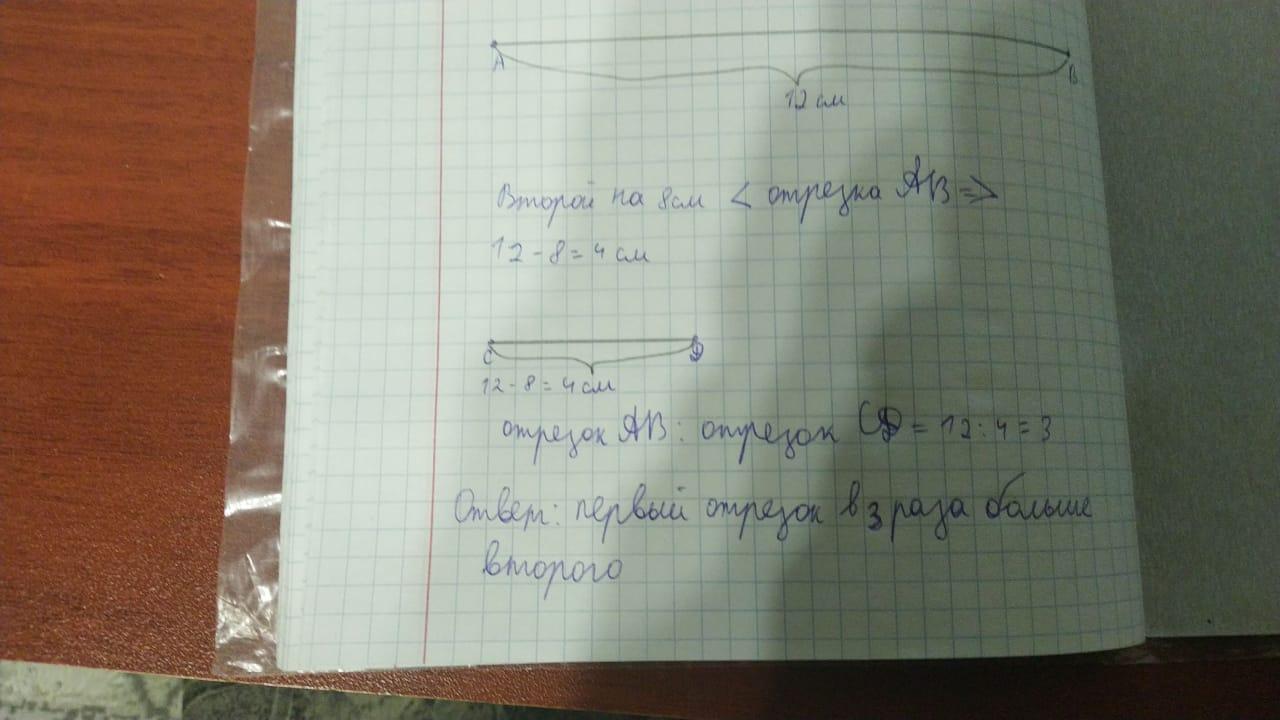 A B
12 см
Второй на 8см < отрезка AB =>
12 - 8 = 4 см
C D
12 - 8 = 4 см
отрезок AB : отрезок CD = 12 : 4 = 3
Ответ: первый отрезок в 3 раза больше
второго